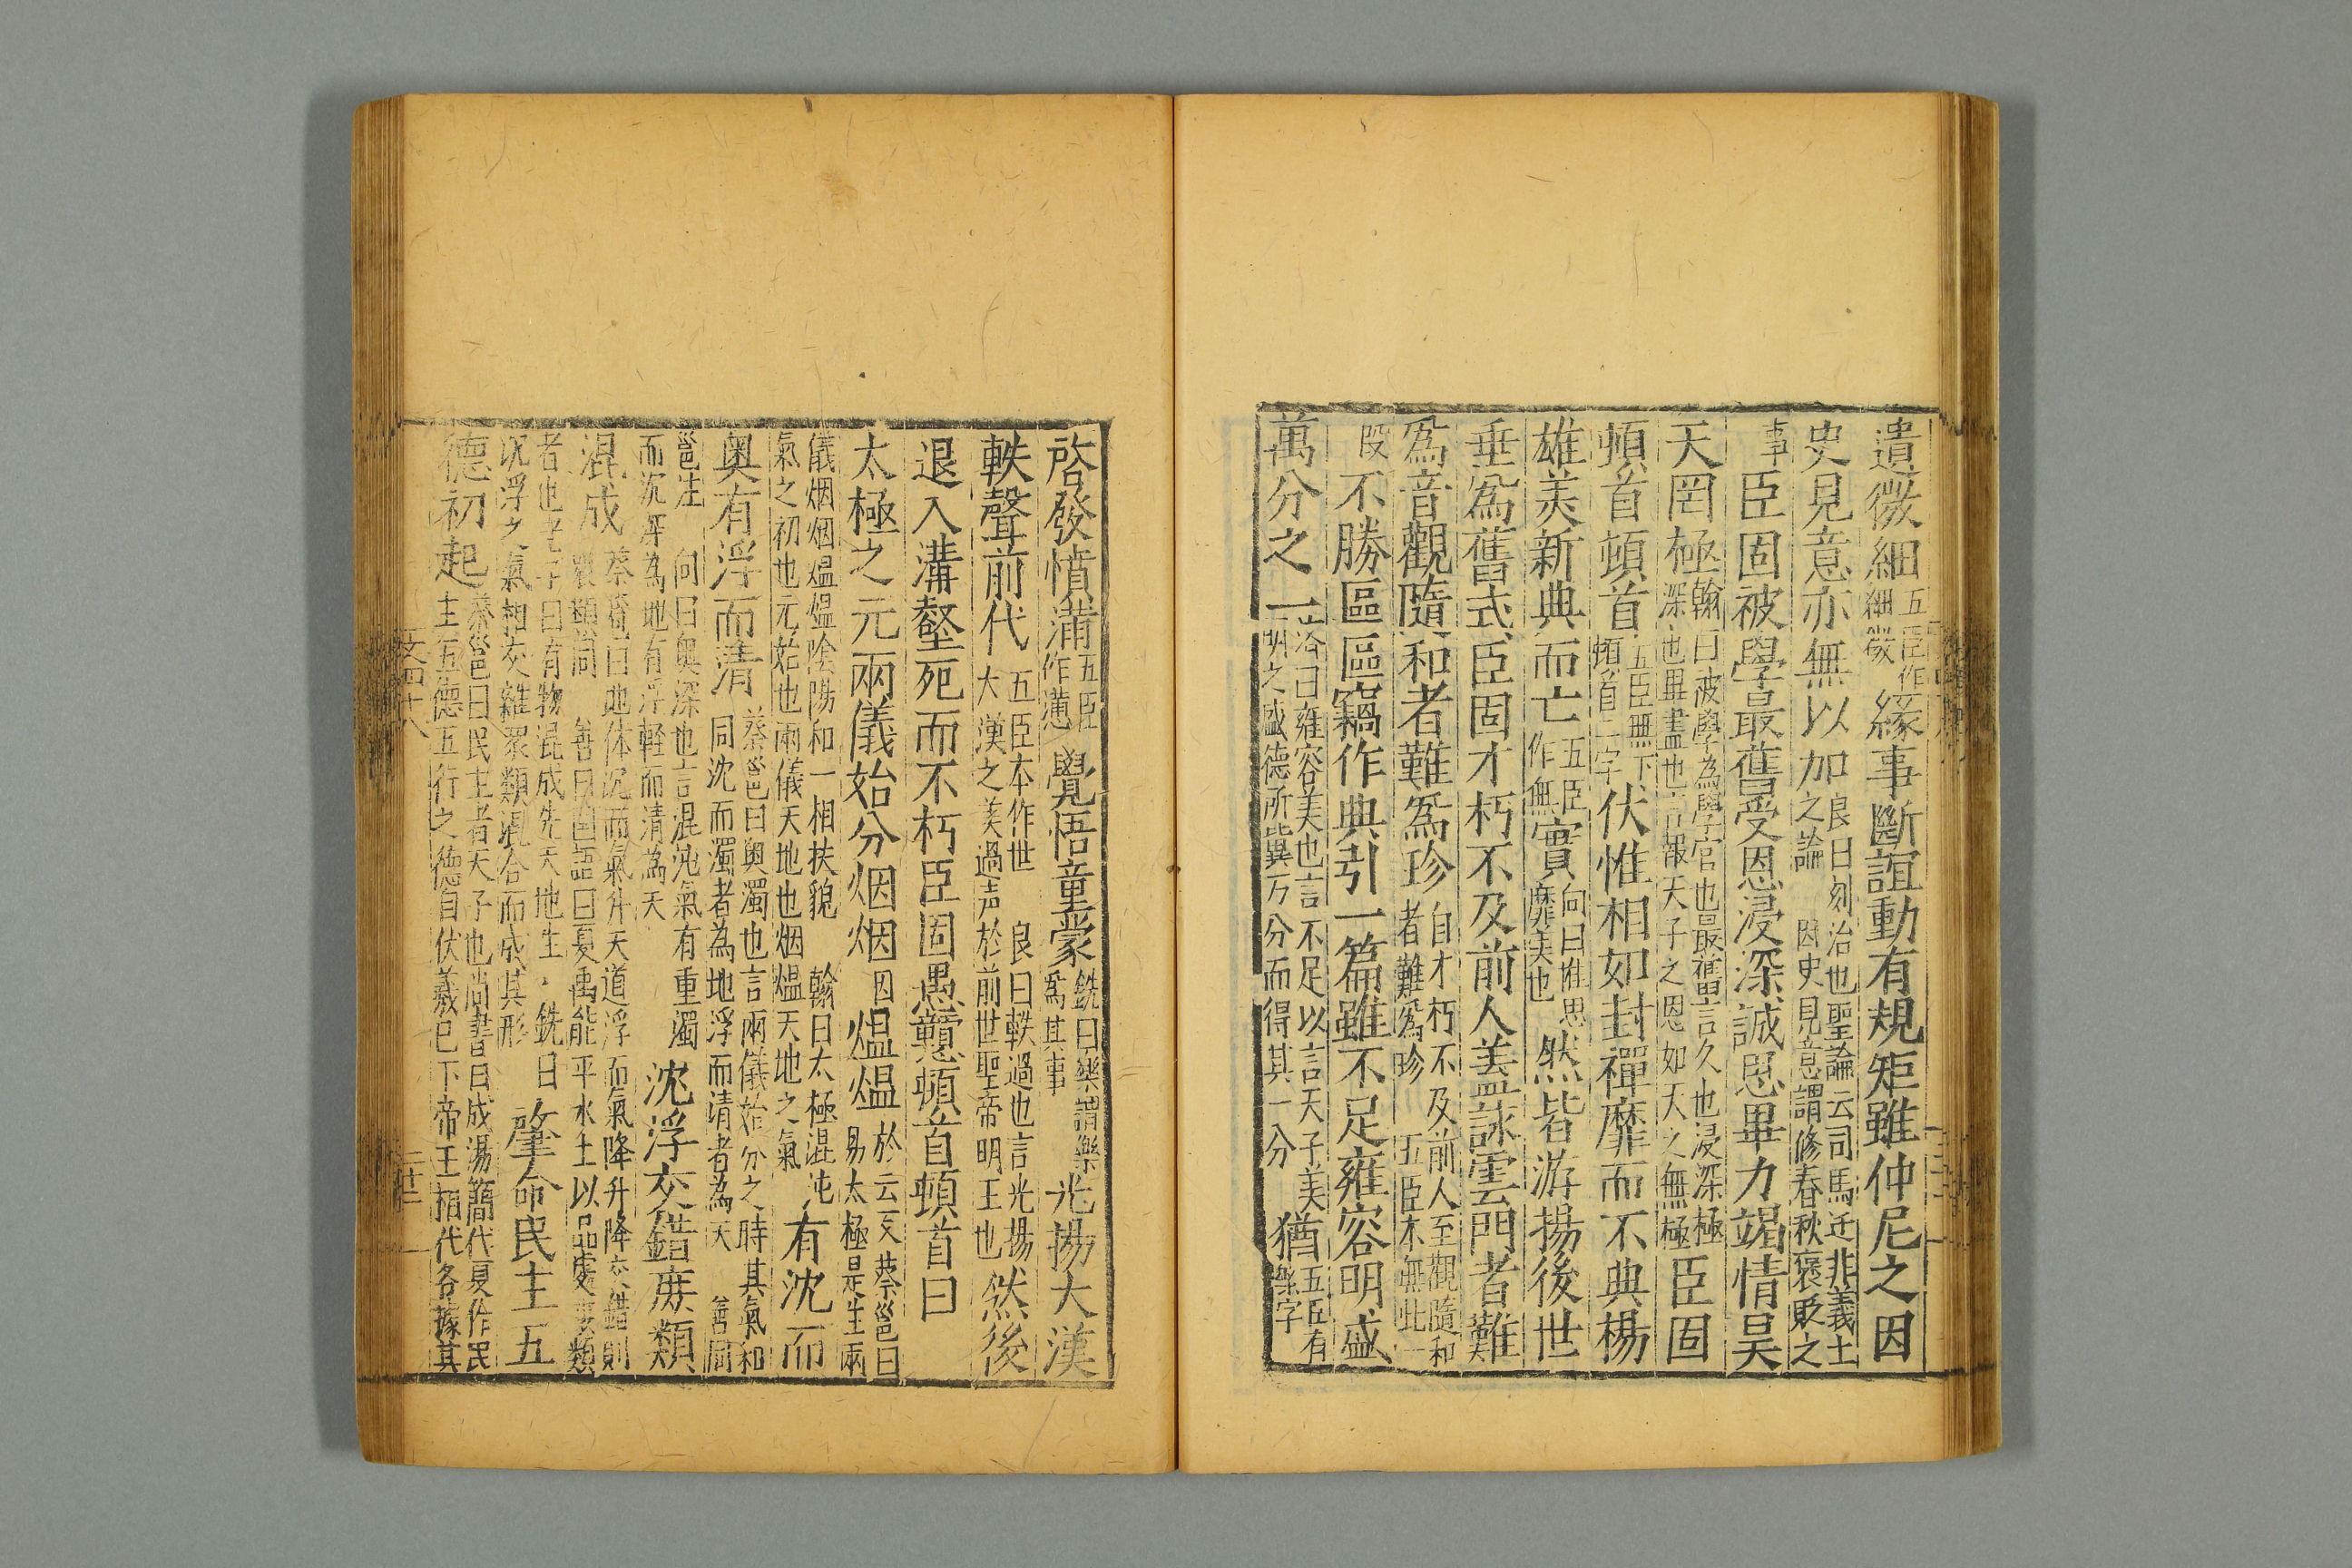 遺微細五臣作細微緣事斷誼動有規矩雖仲尼之因
史見意亦無以加良曰刻治也聖論云司馬迁非義士之論因史見意謂修春秋褒貶之
事臣固被學最舊受恩浸深誠思畢力竭情昊
天罔極翰曰被學為學官也最舊言久也浸深極深也畢盡也言報天子之恩如天之無極臣固
頓首頓首五臣無下頓首二字伏惟相如封禪靡而不典楊
雄美新典而亡五臣作無實向曰惟思靡美也然皆游揚後世
垂爲舊式臣固才朽不及前人盖詠雲門者難
爲音觀隨和者難爲珍自才朽不及前人至觀隨和者難爲珍五臣本無此一
段不勝區區竊作典引一篇雖不足雍容明盛
萬分之一洽曰雍容美也言不足以言天子美明之盛德所兾万分而得其一分猶五臣有樂字
啓發憤滿五臣作懣覺悟童蒙銑曰樂謂樂爲其事光揚大漢
軼聲前代五臣本作世大漢之美過声於前世聖帝明王也良曰軼過也言光揚然後
退入溝壑死而不朽臣固愚戇頓首頓首曰
太極之元兩儀始分烟烟因熅熅於云反蔡邕曰易太極是生兩
儀烟烟熅熅陰陽和一相扶貌翰曰太極混沌氣之初也元始也兩儀天地也烟熅天地之氣有沈而
奧有浮而清蔡邕曰奧濁也言兩儀始分之時其氣和同沈而濁者為地浮而清者為天善同
邕注向曰奧深也言混沌氣有重濁而沉深為地有浮輕而清為天沈浮交錯庶類
混成蔡邕曰地体沉而氣升天道浮而氣降升降交錯則衆類同善曰國語曰夏禹能平水土以品處庶類
者也老子曰有物混成先天地生銑曰沉浮之氣相交雜眾類混合而成其形肇命民主五
德初起蔡邕曰民主者天子也尚書曰成湯簡代夏作民主五德五行之德自伏羲已下帝王相代各據其
文四十八
二十二